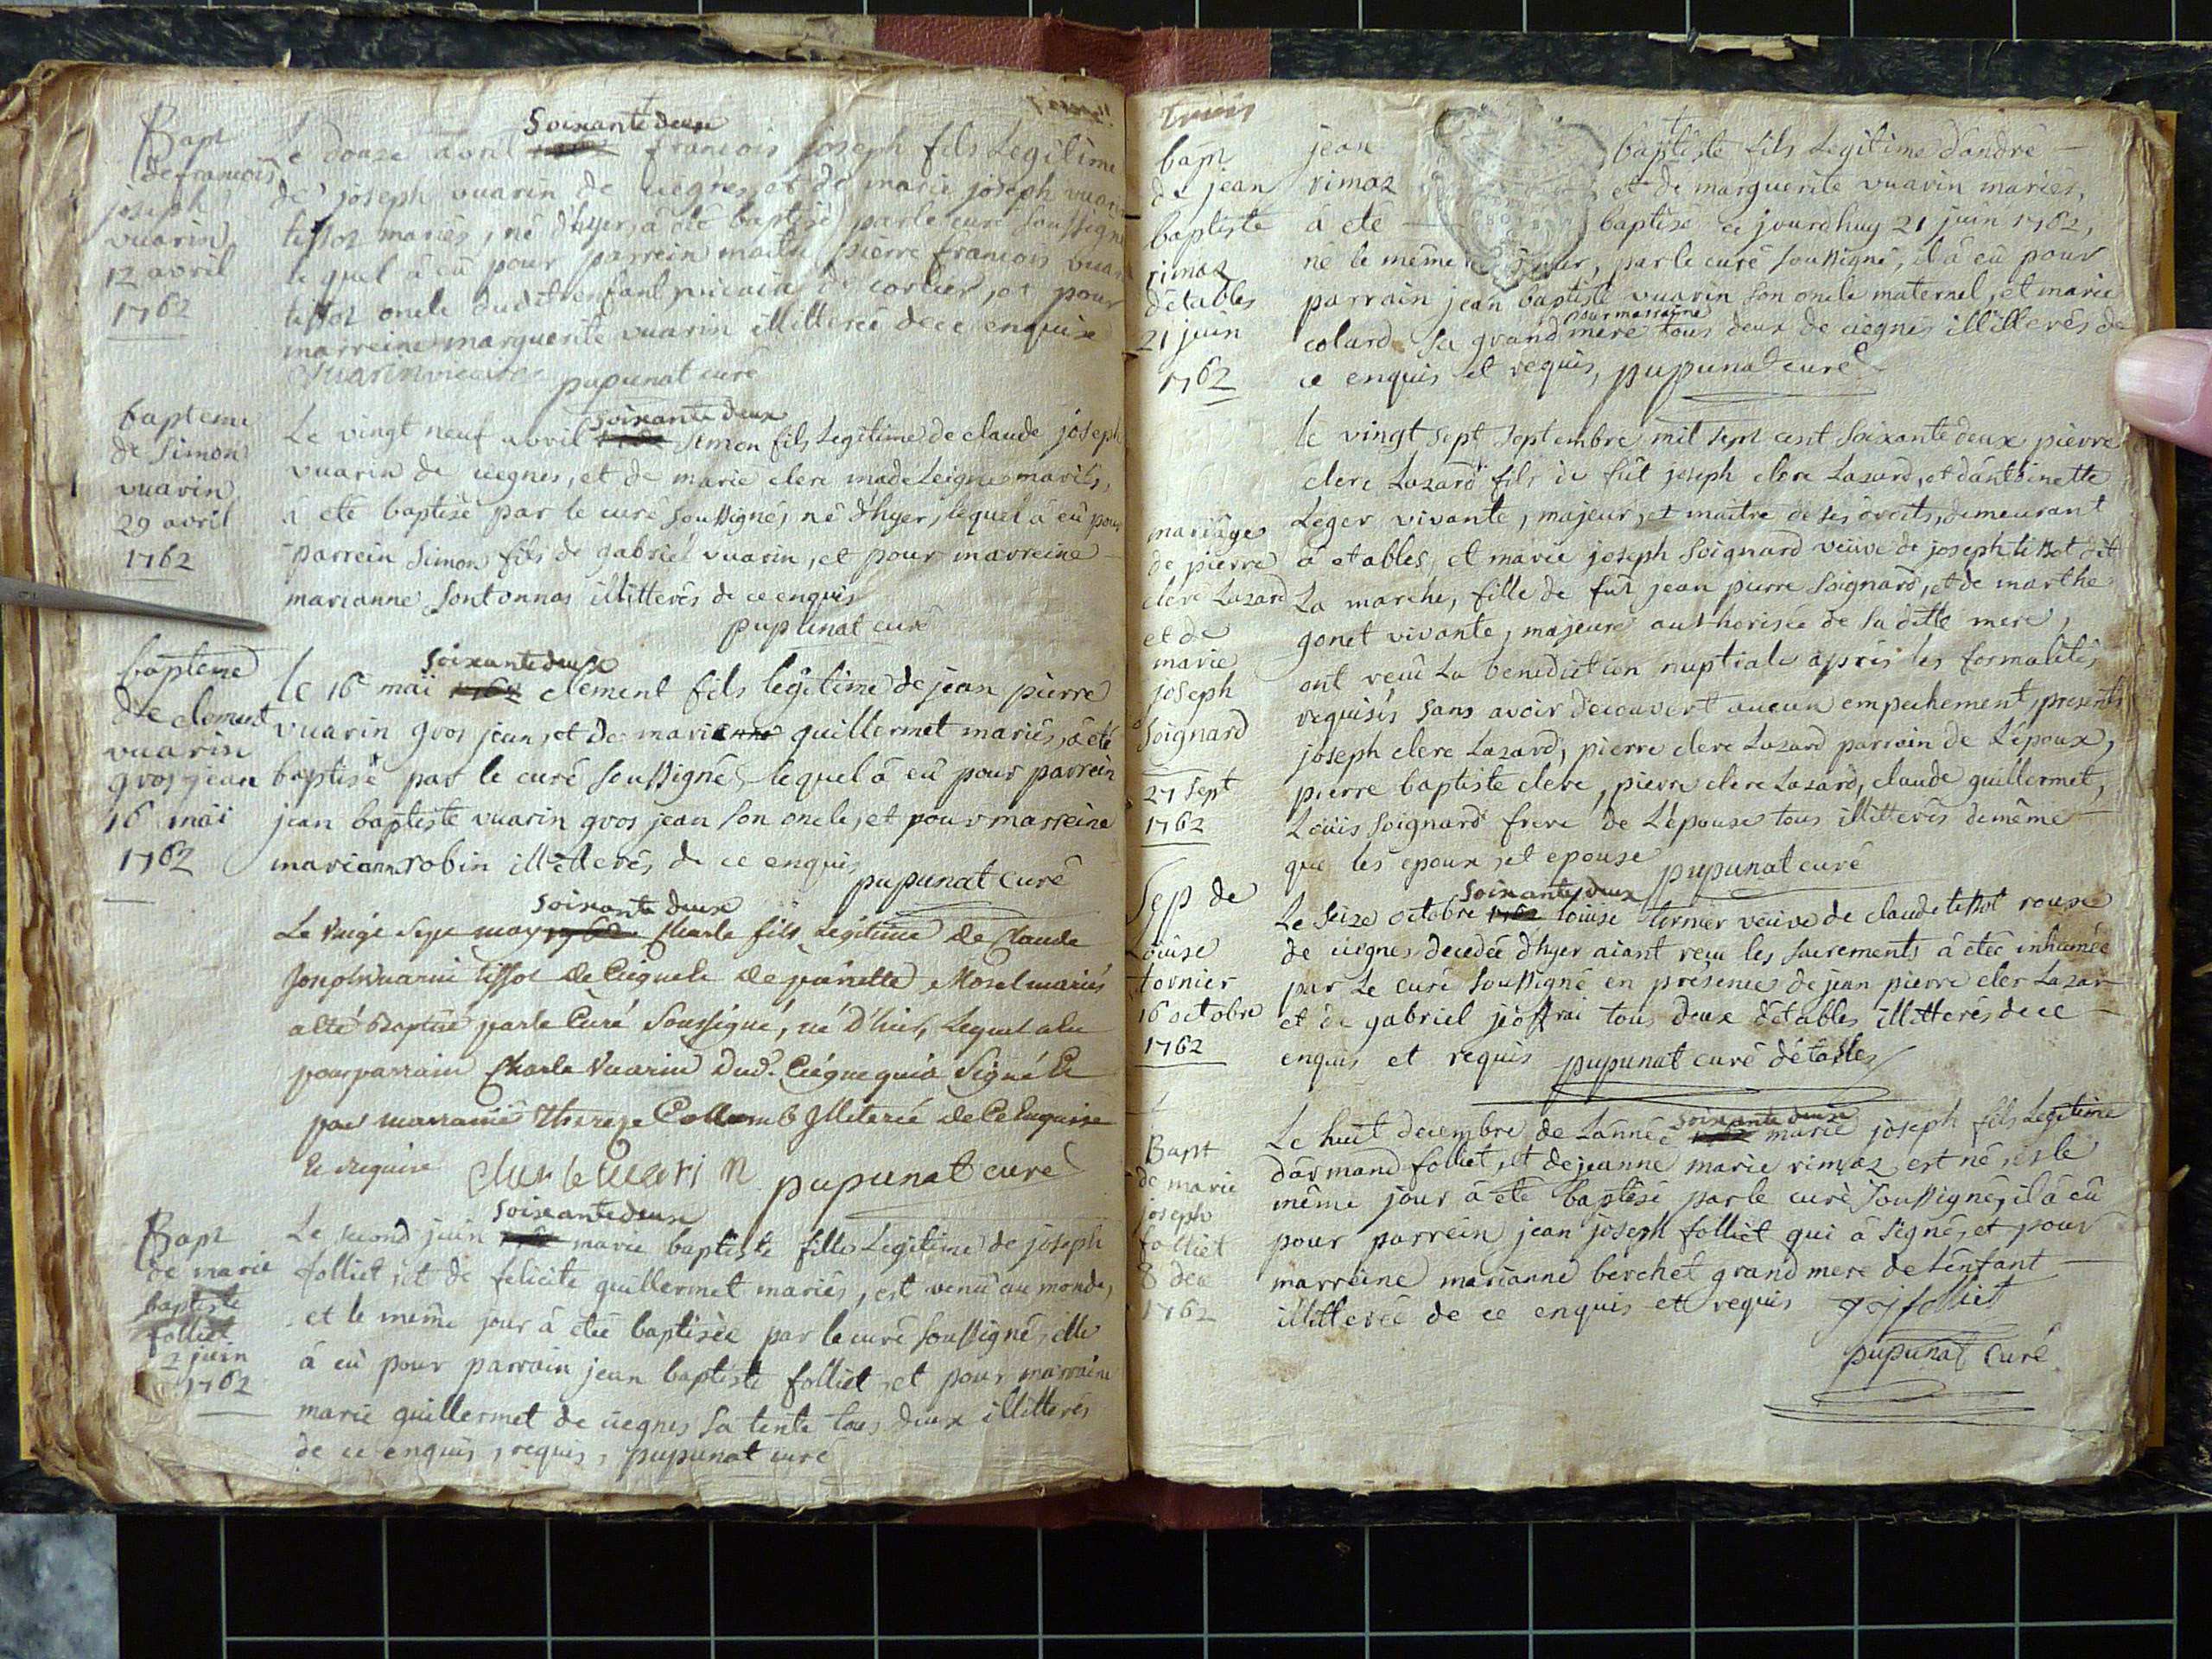 Bapt
de francois
joseph
vuarin
12 avril
1762
soixante deux
Le douze avril francois joseph fils Legitime
de joseph vuarin de ciegnes, et de marie joseph vuarin
tissot mariés, né d'hyer, à été baptisé par le curé soussigné
le quel à eû pour parrein maitre pierre francois vuarin
tissot oncle dudit enfant vicaire de corlier, et pour
marreine marguerite vuarin illitterée de ce enquise
vuarin vicaire pupunat curé
bapteme
de Simon
vuarin
29 avril
1762
soixante deux
Le vingt neuf avril Simon fils Legitime de claude joseph
vuarin de ciegnes, et de marie clerc madeleigne mariés,
à eté baptisé par le curé soussigné, né d'hyer, lequel à eû pour
parrein Simon fils de gabriel vuarin, et pour marreine
marianne sontonnas illitterés de ce enquis
pupunat curé
bapteme
de clement
vuarin
gros jean
16 mai
1762
soixante deux
Le 16e mai 1762 clement fils legitime de jean pierre
vuarin gros jean, et de marianne guillermet mariés, à eté
baptisé par le curé soussigné, lequel à eû pour parrein
jean baptiste vuarin gros jean son oncle, et pour marreine
marianne robin illitterés de ce enquis
pupunat curé
soixante deux
Le vingt sept may 1762 Charle fils Légitime de Claude
Joseph vuarin tissot de Ciegne et de janette Morel mariés
a été Baptisé par le Curé soussigné, né D'hier, Lequel a eu
pour parrain Charle Vuarin Dud. Ciégne qui a Signé Et
pour marraine Thereze Collomb Illiterée de Ce Enquise
Et Requise Charle Vuarin pupunat curé
Bapt
de marie
baptiste
folliet
2 juin
1762
soixante deux
Le second juin marie baptiste fille Legitime de joseph
folliet, et de felicite guillermet mariés, est venu au monde,
et le même jour à etée baptisée par le curé soussigné, elle
à eû pour parrain jean baptiste folliet, et pour marraine
marie guillermet de ciegnes sa tente tous deux illitterés
de ce enquis, requis, pupunat curé
trois
bapt
de jean
baptiste
rimaz
d'etables
21 juin
1762
jean baptiste fils Legitime d'andré
rimaz et de marguerite vuarin mariés,
à eté baptisé ce jourd'huy 21 juin 1762,
né le même jour, par le curé soussigné, il à eû pour
parrain jean baptiste vuarin son oncle maternel, et marie
pour marraine
colard sa grand mere tous deux de ciegnes illitterés de
ce enquis et requis, pupunat curé
mariage
de pierre
clerc Lazard
et de
marie
joseph
Soignard
27 sept
1762
le vingt sept septembre mil sept cent soixante deux pierre
clerc Lazard fils de fût joseph clerc Lazard, et d'antoinette
Leger vivante, majeur, et maitre de ses droits, demeurant
à etables, et marie joseph Soignard veuve de joseph tissot dit
La marche, fille de fut jean pierre Soignard, et de marthe
gonet vivante, majeure authorisée de sa ditte mere,
ont reçu La benediction nuptiale après les formalités
requises sans avoir decouvert aucun empechement, presents
joseph clerc Lazard, pierre clerc Lazard parrain de L'époux,
pierre baptiste clerc, pierre clerc Lazard, claude guillermet,
Louis Soignard frere de L'epouse tous illitterés de même
que les epoux, et epouse pupunat curé
Sep de
Louise
tornier
16 octobre
1762
soixante deux
Le Seize octobre 1762 Louise tornier veuve de claude tissot rouse
de ciegnes decedée d'hyer aiant reçu les sacrements à etée inhumée
par Le curé soussigné en présence de jean pierre cler Lazar
et de gabriel jeoffrai tous deux d'etables illitterés de ce
enquis et requis pupunat curé d'etables
Bapt
de marie
joseph
folliet
8 dec
1762
soixante deux
Le huit decembre de L'année marie joseph fils Legitime
d'armand folliet, et de jeanne marie rimaz est né, et le
même jour à eté baptisé par le curé soussigné, il à eû
pour parrein jean joseph folliet qui à signé, et pour
marreine marianne berchet grand mere de L'enfant
illitterée de ce enquis et requis jj folliet
pupunat curé